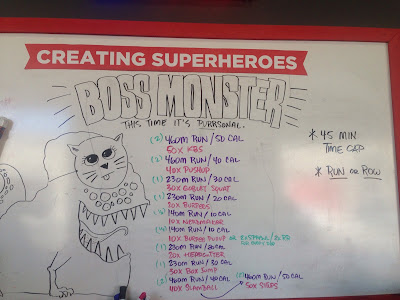 CREATING SUPERHEROES
BOSS MONSTER
THIS TIME IT'S PURRSONAL.
(2) 400m RUN/50 CAL
50x KBS
(2) 400m RUN/40 CAL
40x PUSHUP
(1) 230m RUN/30 CAL
30x GOBLET SQUAT
(1) 230m RUN/20 CAL
20x BURPEES
40m RUN/10 CAL
10x
40m RUN/10 CAL
10x BURPEE PUSHUP OR
(1) 230m RUN/20 CAL
20x
(1) 230m RUN/30 CAL
30x BOX JUMP
(2) 400m RUN/40 CAL
40x SLAMBALL
400m RUN/50 CAL
50x STEPS
* 45 MIN
TIME CAP
* RUN OR ROW